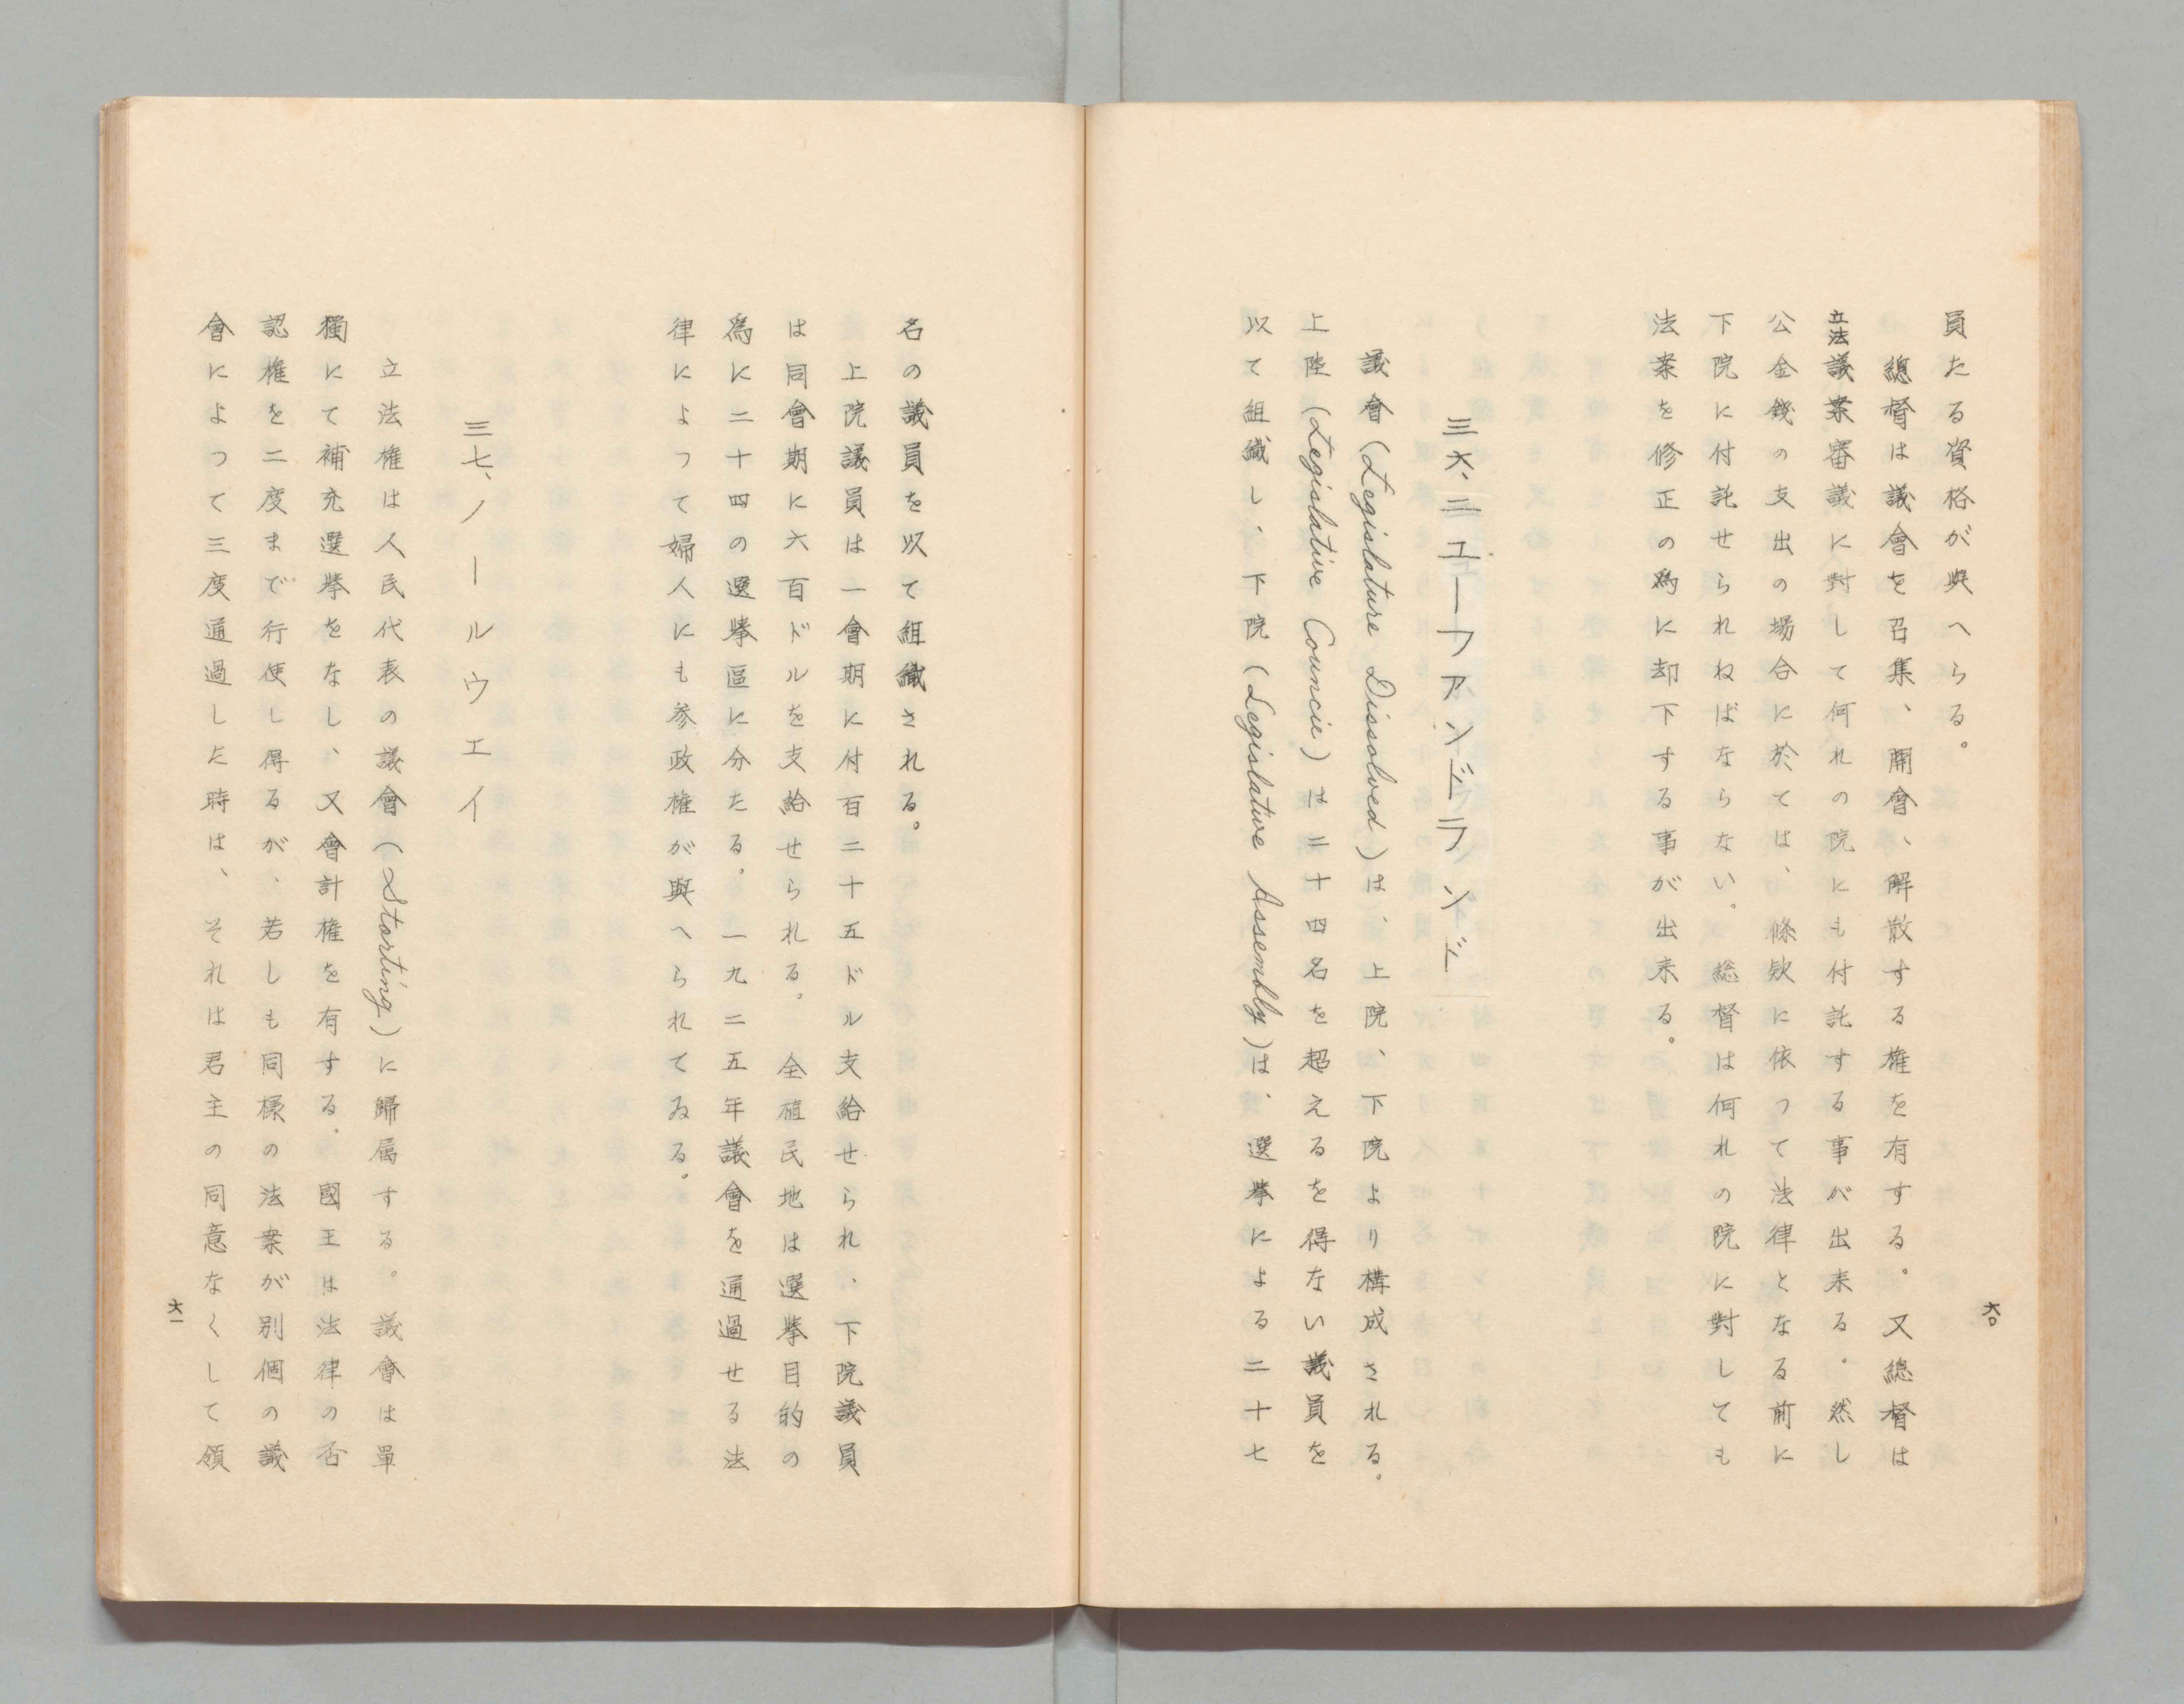 員たる資格が與へらる。
總督は議會を召集、開會、解散する権を有する。又總督は
立法議案審議に對して何れの院にも付託する事が出来る。然し
公金錢の支出の場合に於ては、條欵に依つて法律となる前に
下院に付託せられねばならない。総督は何れの院に對しても
法案を修正の為に却下する事が出来る。
三六、ニユーファンドランド
議會(Legislature Dissolved)は、上院、下院より構成される。
上陸(Legislative Councie)は二十四名を超えるを得ない議員を
以て組織し、下院(Legislative Assembly)は、選挙による二十七
六〇
名の議員を以て組織される。
上院議員は一會期に付百二十五ドル支給せられ、下院議員
は同會期に六百ドルを支給せられる。全植民地は選挙目的の
為に二十四の選挙區に分たる。一九二五年議會を通過せる法
律によつて婦人にも参政権が與へられてゐる。
三七、ノールウエイ
立法権は人民代表の議會(Storting)に歸属する。議會は單
獨にて補充選挙をなし、又會計権を有する。國王は法律の否
認権を二度まで行使し得るが、若しも同様の法案が別個の議
會によつて三度通過した時は、それは君主の同意なくして領
六一